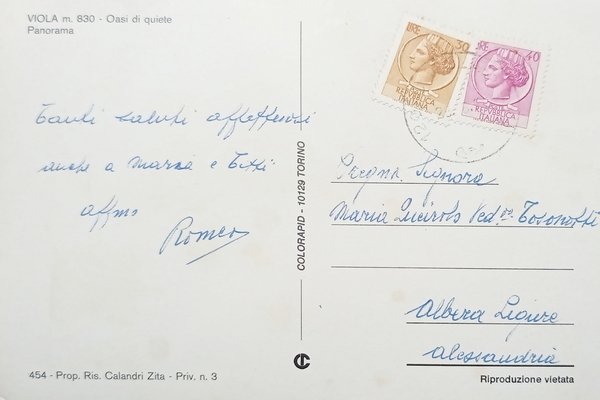 VIOLA m. 830 - Oasi di quiete
Panorama
Tanti saluti affettuosi
anche a Marza e Titti
affmo
Romeo
COLORAPID - 10129 TORINO
LIRE 30
POSTE REPUBBLICA ITALIANA
LIRE 40
POSTE REPUBBLICA ITALIANA
Pregma Signora
Maria Queirolo Ved.va Tosonotti
Albera Ligure
Alessandria
454 - Prop. Ris. Calandri Zita - Priv. n. 3
Riproduzione vietata